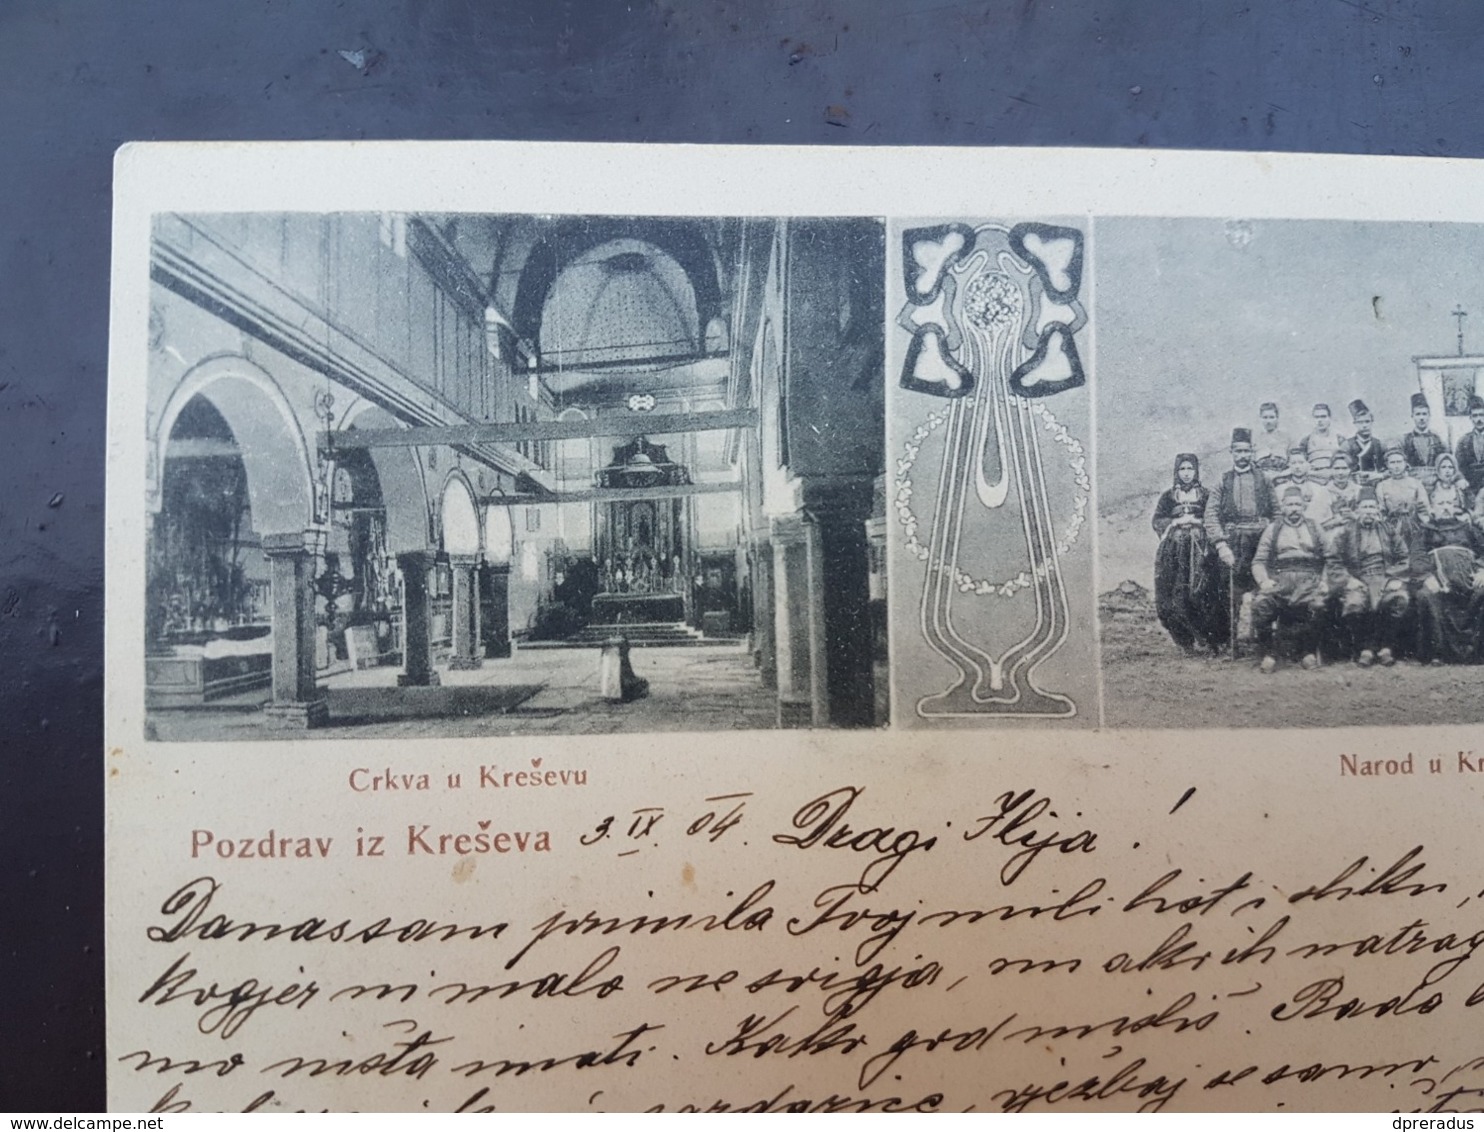 Crkva u Kreševu
Narod u Kr
Pozdrav iz Kreševa 3. IX. 04. Dragi Ilija!
Danas sam primila Tvoj mili list i sliku,
ni malo ne svigja, natrag
mo ništa imati. Kako god misliš. Rado
vježbaj se samo,
www.delcampe.net
dpreradus